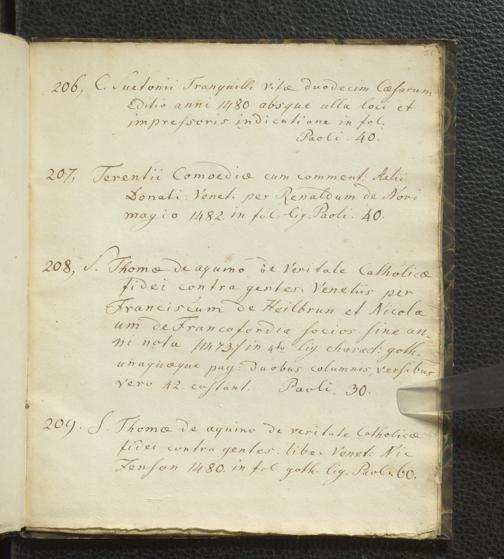 206, C. Suetonii Tranquilli vitæ duodecim Cæsarum
Editio anni 1480 absque ulla loci et
impressoris indicatione in fol.
Paoli. 40.
207, Terentii Comoediæ cum comment: Aelii
Donati. Venet. per Renaldum de Novi
magio 1482 in fol. lig. Paoli. 40.
208, S. Thomæ de aquino de Veritate Catholicæ
fidei contra gentes. Venetiis per
Franciscum de Heilbrun et Nicola
um de Francofordia socios sine an,
ni nota /1473/ in 4to lig. charact: goth.
unaquæque pag: duobus columnis, versibus
vero 42. constant. Paoli. 30.
209. S. Thomæ de aquino de veritate Catholicæ
fidei contra gentes. libr. Venet. Nic
Jenson 1480. in fol. goth. lig. Paol. 60.